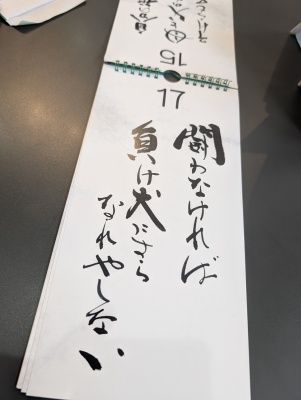 15
17
闘わなければ
負け犬にさら
なれやしない